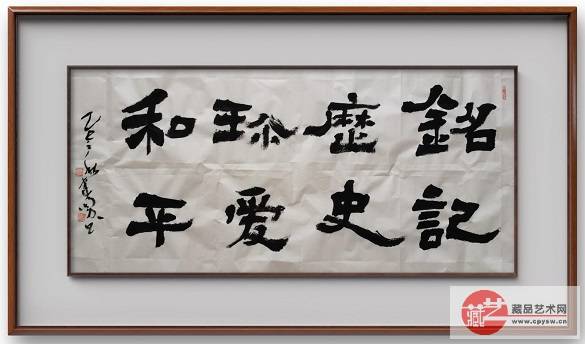 銘記
歷史
珎爱
和平
藏品艺术网
www.cpysw.cn